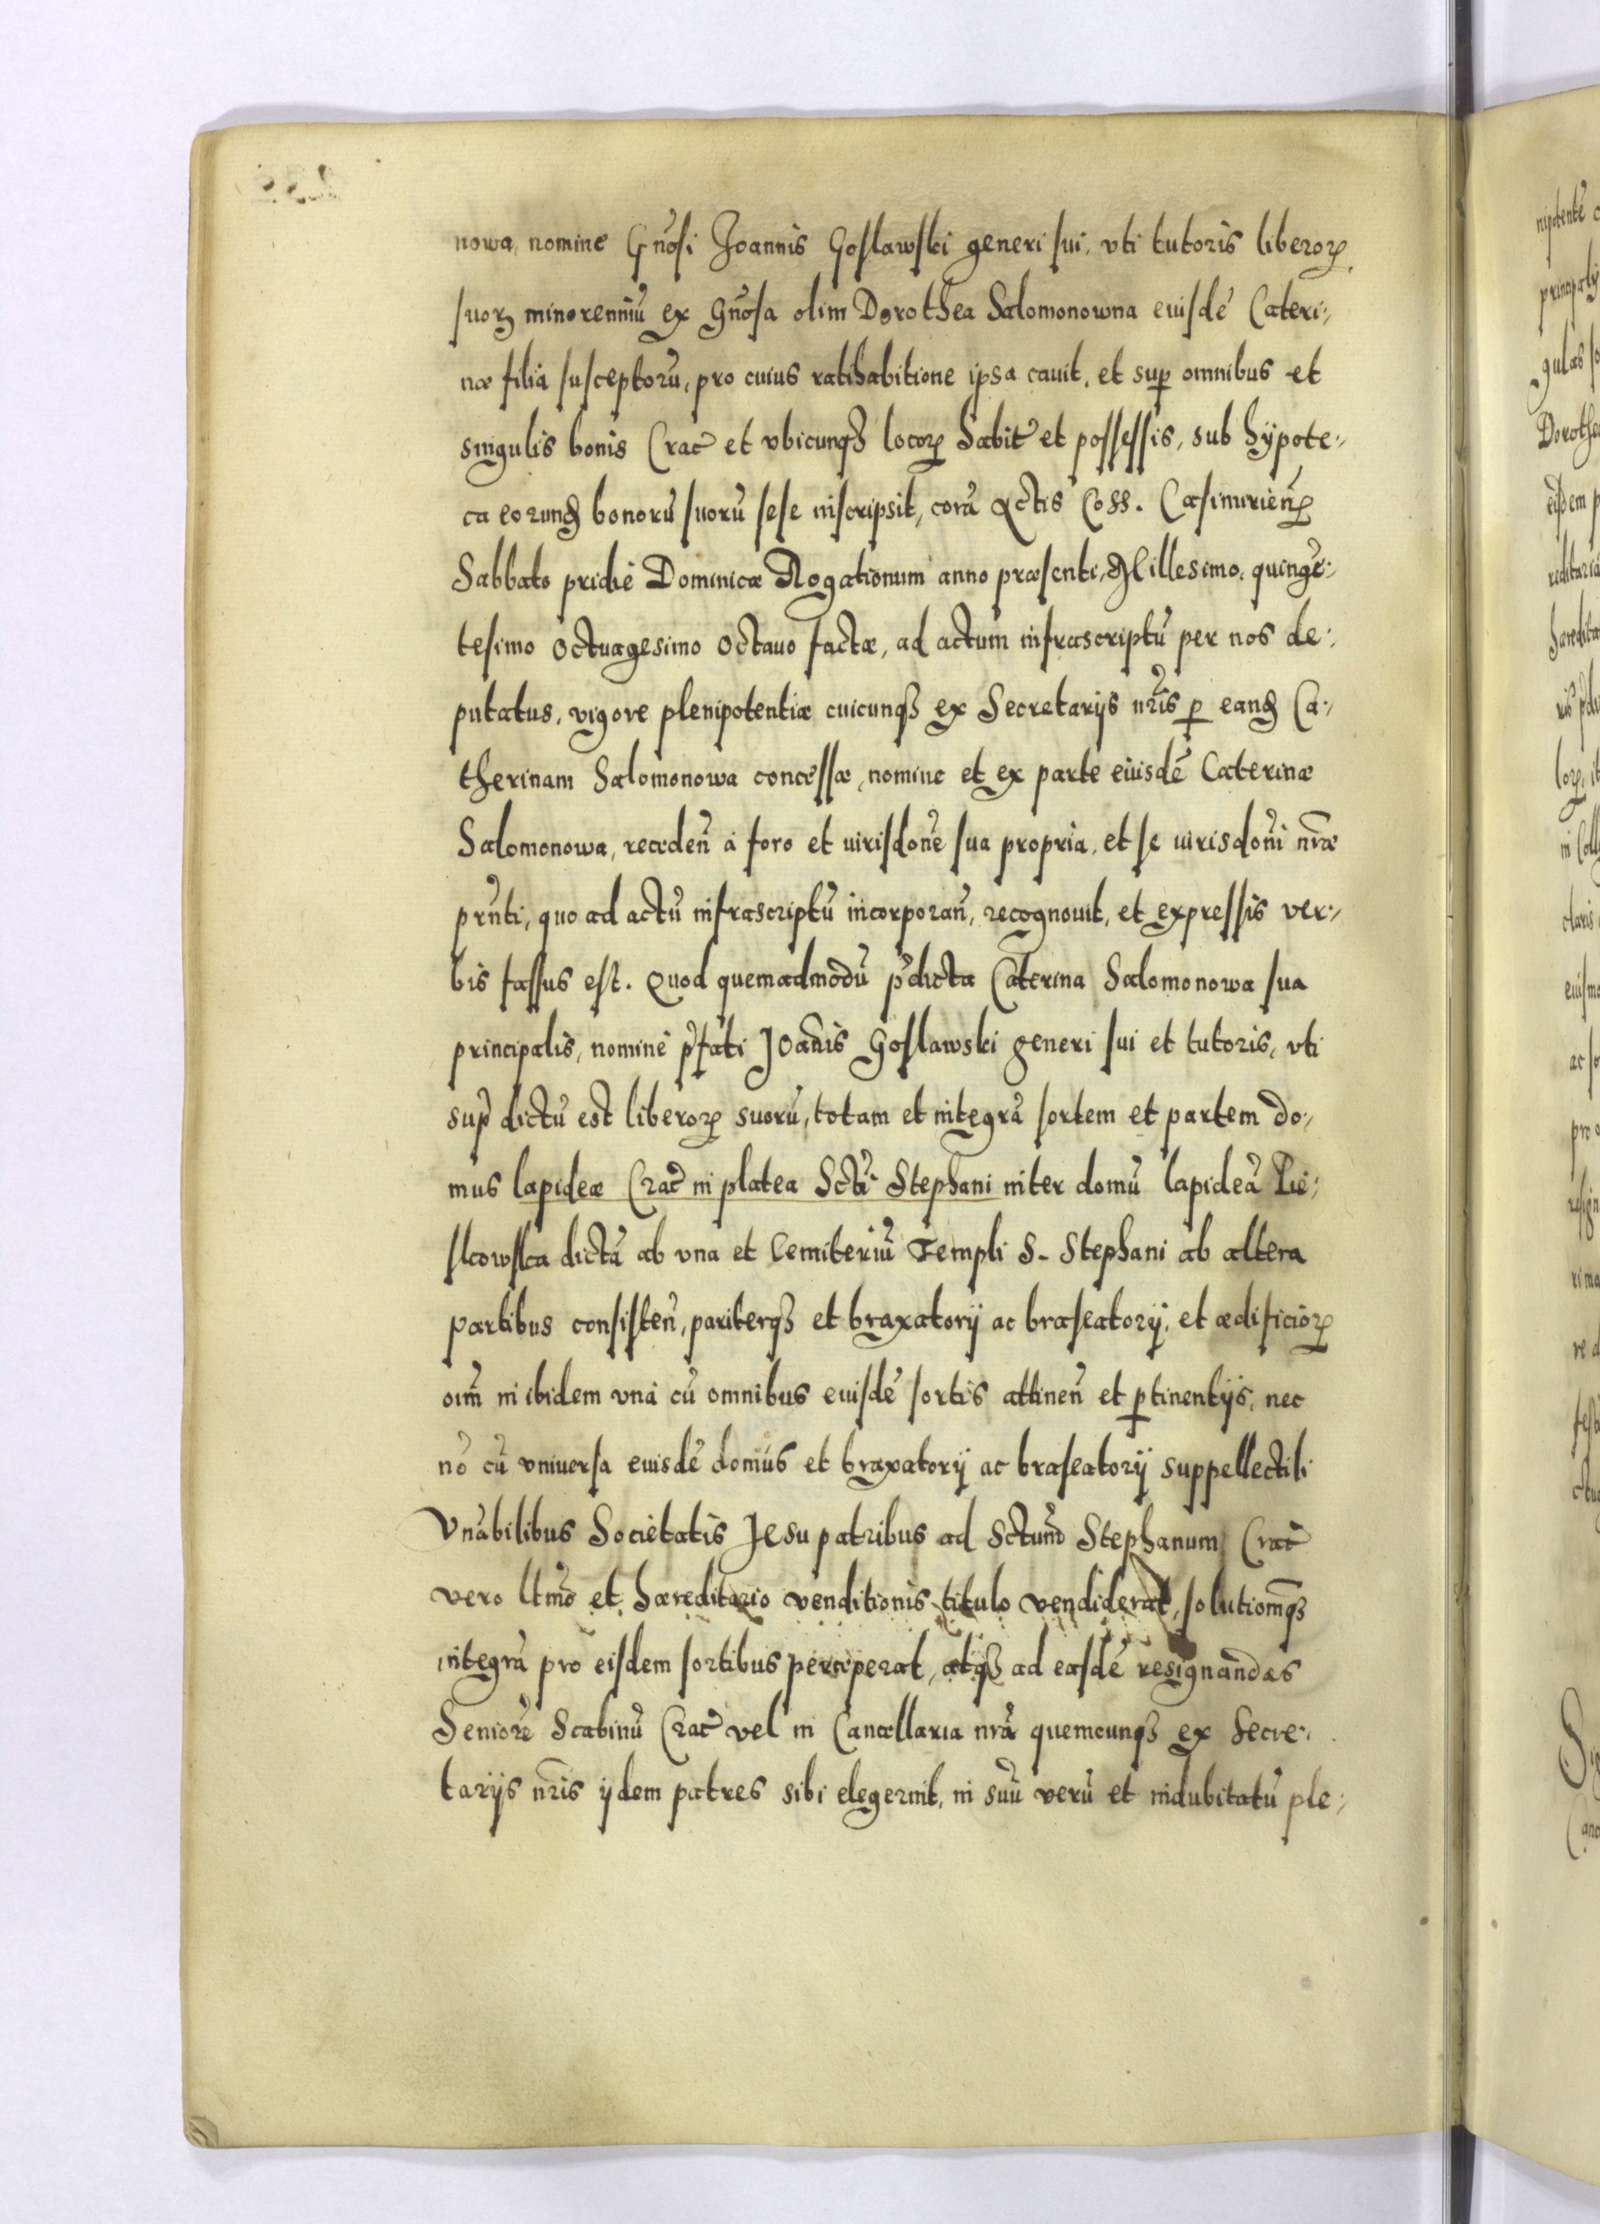 nowa, nomine Gnosi Joannis Goslawski generi sui, vti tutoris liberorꝝ
suorꝝ minorenniũ ex Gnosa olim Dorothea Salomonowna euisdẽ Cateri:
næ filia susceptorũ, pro cuius ratihabitione ipsa cauit, et suꝑ omnibus et
singulis bonis Crac et vbicunqꝫ locorꝝ habit et possessis, sub hÿpote:
ca eorundꝫ bonorũ suorũ sese inscripsit, corã Actis Coss. Casimirieñ
Sabbato pridie Dominicæ Rogationum anno præsenti, Millesimo, quingẽ:
tesimo Octuagesimo Octauo factæ, ad actum infrascriptũ per nos de:
putatus, vigore plenipotentiæ cuicunqꝫ ex Secretarijs nr̃is ꝑ eandꝫ Ca:
therinam Salomonowa concessæ, nomine et ex parte eiusdẽ Caterinæ
Salomonowa, recedeñ à foro et iurisdone sua propria, et se iurisdoni nr̃æ
prñti, quo ad actũ infrascriptũ incorporañ, recognouit, et expressis ver:
bis fassus est. Quod quemadmodũ p̃dicta Caterina Salomonowa sua
principalis, nomine p̃fati Joannis Goslawski generi sui et tutoris, vti
sup̃ dictũ est liberorꝝ suorũ, totam et integrã sortem et partem do:
mus lapideæ Crac in platea Scti Stephani inter domũ lapideã Pie:
skowska dictã ab vna et Cemiteriũ Templi S. Stephani ab altera
partibus consisteñ, pariterqꝫ et braxatorij ac braseatorij, et ædificiorꝝ
oim̃ in ibidem vnà cũ omnibus euisdẽ sortis attineñ et ꝑtinentijs, nec
nõ cũ vniuersa euisdẽ domus et braxatorij ac braseatorij suppellectili
Vnãbilibus Societatis Jesu patribus ad Sctum Stephanum Crac
vero ltm̃o et hæreditario venditionis titulo vendiderat, solutiom̃qꝫ
integrã pro eisdem sortibus perceperat, atqꝫ ad easdẽ resignandas
Seniorẽ Scabinũ Crac vel in Cancellaria nr̃a quemcunqꝫ ex Secre:
tarijs nr̃is ijdem patres sibi elegerint, in suũ verũ et indubitatũ ple: